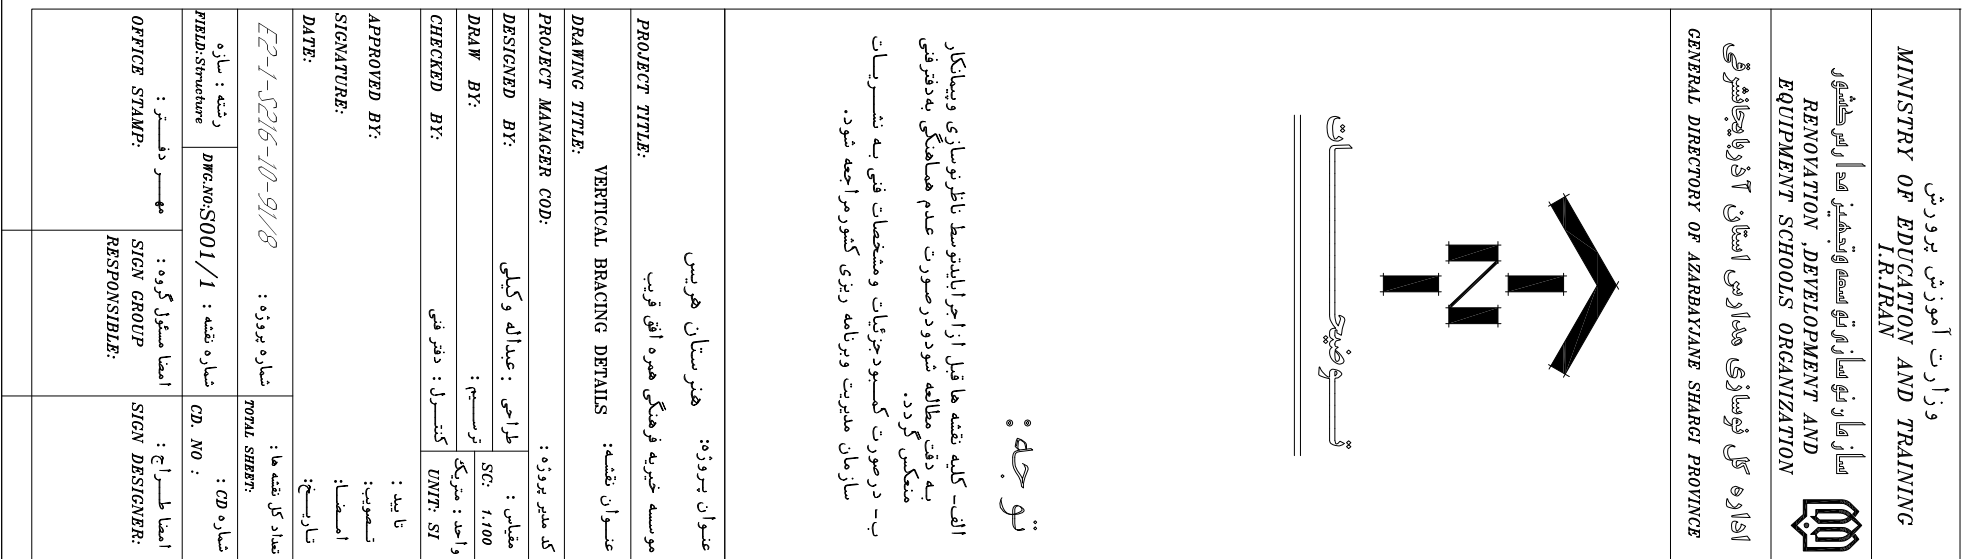 وزارت آموزش پرورش
MINISTRY OF EDUCATION AND TRAINING
I.R.IRAN
سازمان نوسازی توسعه و تجهیز مدارس کشور
RENOVATION ,DEVELOPMENT AND
EQUIPMENT SCHOOLS ORGANIZATION
اداره کل نوسازی مدارس استان آذربایجانشرقی
GENERAL DIRECTORY OF AZARBAYJANE SHARGI PROVINCE
N
توضیحات
توجه :
الف- کلیه نقشه ها قبل از اجرا بایدتوسط ناظرنوسازی وپیمانکار
به دقت مطالعه شودودرصورت عدم هماهنگی به دفترفنی
منعکس گردد.
ب- درصورت کمبود جزئیات ومشخصات فنی به نشریات
سازمان مدیریت وبرنامه ریزی کشورمراجعه شود.
عنوان پروژه: هنرستان هریس
PROJECT TITLE: موسسه خیریه فرهنگی همره افق قریب
عنوان نقشه: VERTICAL BRACING DETAILS
DRAWING TITLE:
PROJECT MANAGER COD: کد مدیر پروژه :
DESIGNED BY: طراحی : عبداله وکیلی
مقیاس :
SC: 1.100
DRAW BY: ترسیم :
CHECKED BY: کنترل : دفتر فنی
واحد : متریک
UNIT: SI
تایید :
APPROVED BY: تصویب:
SIGNATURE: امضا:
DATE: تاریخ:
E2-1-S216-10-91/8 شماره پروژه :
تعداد کل نقشه ها :
TOTAL SHEET:
رشته : سازه
FIELD:Structure
DWG.NO:S001/1 شماره نقشه :
شماره CD :
CD. NO :
مهر دفتر :
OFFICE STAMP:
امضا مسئول گروه :
SIGN GROUP
RESPONSIBLE:
امضا طراح :
SIGN DESIGNER: